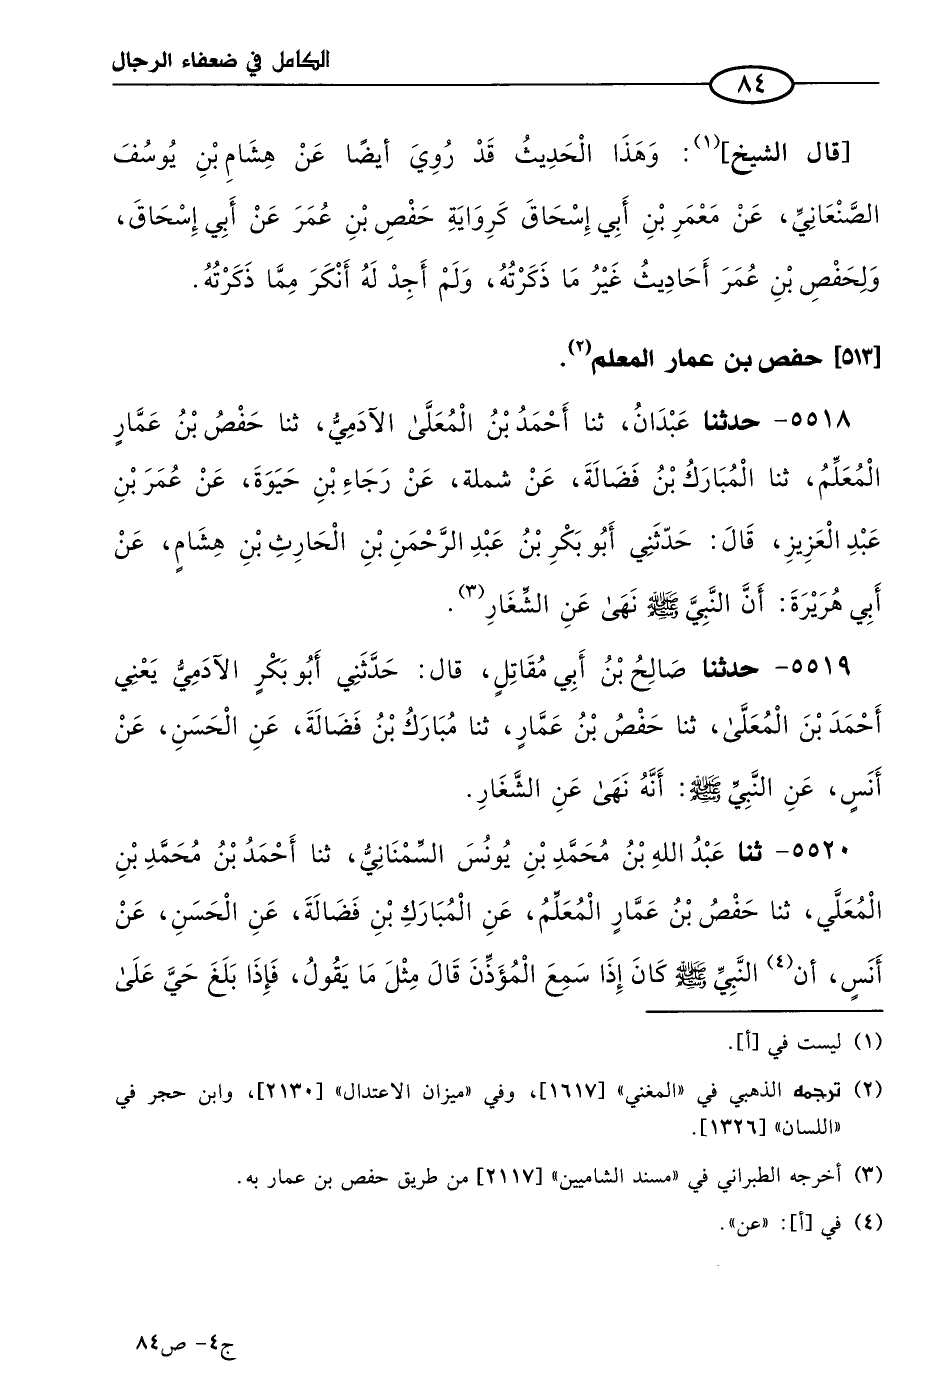 الكامل في ضعفاء الرجال
٨٤
[قال الشيخ](١): وَهَذَا الْحَدِيثُ قَدْ رُوِيَ أيضًا عَنْ هِشَامِ بْنِ يُوسُفَ
الصَّنْعَانِيِّ، عَنْ مَعْمَرِ بْنِ أَبِي إِسْحَاقَ كَرِوَايَةِ حَفْصِ بْنِ عُمَرَ عَنْ أَبِي إِسْحَاقَ،
وَلِحَفْصِ بْنِ عُمَرَ أَحَادِيثُ غَيْرُ مَا ذَكَرْتُهُ، وَلَمْ أَجِدْ لَهُ أَنْكَرَ مِمَّا ذَكَرْتُهُ.
[٥١٣] حفص بن عمار المعلم(٢).
٥٥١٨- حدثنا عَبْدَانُ، ثنا أَحْمَدُ بْنُ الْمُعَلَّىٰ الآدَمِيُّ، ثنا حَفْصُ بْنُ عَمَّارٍ
الْمُعَلِّمُ، ثنا الْمُبَارَكُ بْنُ فَضَالَةَ، عَنْ شملة، عَنْ رَجَاءِ بْنِ حَيَوَةَ، عَنْ عُمَرَ بْنِ
عَبْدِ الْعَزِيزِ، قَالَ: حَدَّثَنِي أَبُو بَكْرِ بْنُ عَبْدِ الرَّحْمَنِ بْنِ الْحَارِثِ بْنِ هِشَامٍ، عَنْ
أَبِي هُرَيْرَةَ: أَنَّ النَّبِيَّ ﷺ نَهَىٰ عَنِ الشِّغَارِ(٣).
٥٥١٩- حدثنا صَالِحُ بْنُ أَبِي مُقَاتِلٍ، قال: حَدَّثَنِي أَبُو بَكْرٍ الآدَمِيُّ يَعْنِي
أَحْمَدَ بْنَ الْمُعَلَّىٰ، ثنا حَفْصُ بْنُ عَمَّارٍ، ثنا مُبَارَكُ بْنُ فَضَالَةَ، عَنِ الْحَسَنِ، عَنْ
أَنَسٍ، عَنِ النَّبِيِّ ﷺ: أَنَّهُ نَهَىٰ عَنِ الشَّغَارِ.
٥٥٢٠- ثنا عَبْدُ اللهِ بْنُ مُحَمَّدِ بْنِ يُونُسَ السِّمْنَانِيُّ، ثنا أَحْمَدُ بْنُ مُحَمَّدِ بْنِ
الْمُعَلَّي، ثنا حَفْصُ بْنُ عَمَّارٍ الْمُعَلِّمُ، عَنِ الْمُبَارَكِ بْنِ فَضَالَةَ، عَنِ الْحَسَنِ، عَنْ
أَنَسٍ، أن(٤) النَّبِيِّ ﷺ كَانَ إِذَا سَمِعَ الْمُؤَذِّنَ قَالَ مِثْلَ مَا يَقُولُ، فَإِذَا بَلَغَ حَيَّ عَلَىٰ
(١) ليست في [أ].
(٢) ترجمه الذهبي في «المغني» [١٦١٧]، وفي «ميزان الاعتدال» [٢١٣٠]، وابن حجر في
«اللسان» [١٣٢٦].
(٣) أخرجه الطبراني في «مسند الشاميين» [٢١١٧] من طريق حفص بن عمار به.
(٤) في [أ]: «عن».
ج٤- ص٨٤